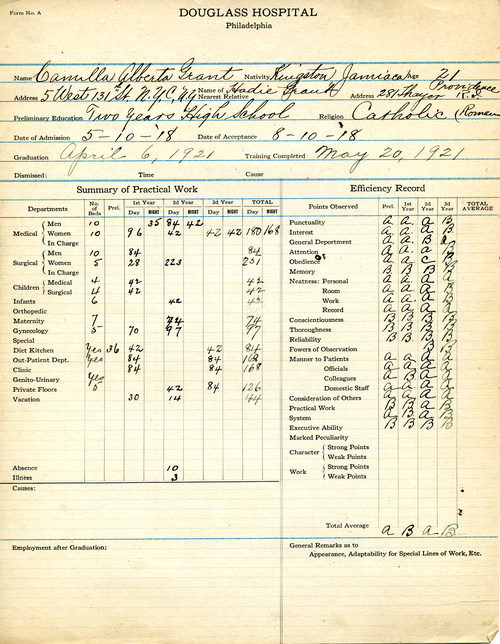 Form No. A
DOUGLASS HOSPITAL
Philadelphia
Name Camilla Alberta Grant Nativity Kingston Jamiaca Age 21
Address 5 West 131st St. N.Y.C. Name of Nearest Relative Sadie Grant Address 281 Thayer Providence R.I.
Preliminary Education Two Years High School Religion Catholic (Roman
Date of Admission 5-10-18 Date of Acceptance 8-10-18
Graduation April 6, 1921 Training Completed May 20, 1921
Dismissed: Time Cause
Summary of Practical Work
Departments No. of Beds Prel. 1st Year 2d Year 3d Year TOTAL
Day NIGHT Day NIGHT Day NIGHT Day NIGHT
Medical Men 10 35 84 42
Women 10 96 42 42 42 180 168
In Charge
Surgical Men 10 84 84
Women 5 28 223 251
In Charge
Children Medical 4 42 42
Surgical 4 42 42
Infants 6 42 42
Orthopedic
Maternity 7 74 74
Gynecology 5 70 97 97
Special
Diet Kitchen Yes 36 42 42 84
Out-Patient Dept. Yes 84 84 168
Clinic 84 84 168
Genito-Urinary Yes
Private Floors 5 42 84 126
Vacation 30 14 44
Absence 10
Illness 3
Causes:
Employment after Graduation:
Efficiency Record
Points Observed Prel. 1st Year 2d Year 3d Year TOTAL AVERAGE
Punctuality A A A B
Interest A A A B
General Department A A B
Attention A A A B
Obedience A A C B
Memory B B B B
Neatness: Personal A A A B
Room A A A B
Work A A A B
Record A A A B
Conscientiousness B B B B
Thoroughness B B B B
Reliability B B B B
Powers of Observation B B
Manner to Patients A A A A
Officials A A A A
Colleagues A B A A
Domestic Staff A A A A
Consideration of Others A A A A
Practical Work B B A B
System A B A B
Executive Ability B B B B
Marked Peculiarity
Character Strong Points
Weak Points
Work Strong Points
Weak Points
Total Average A B A B
General Remarks as to
Appearance, Adaptability for Special Lines of Work, Etc.